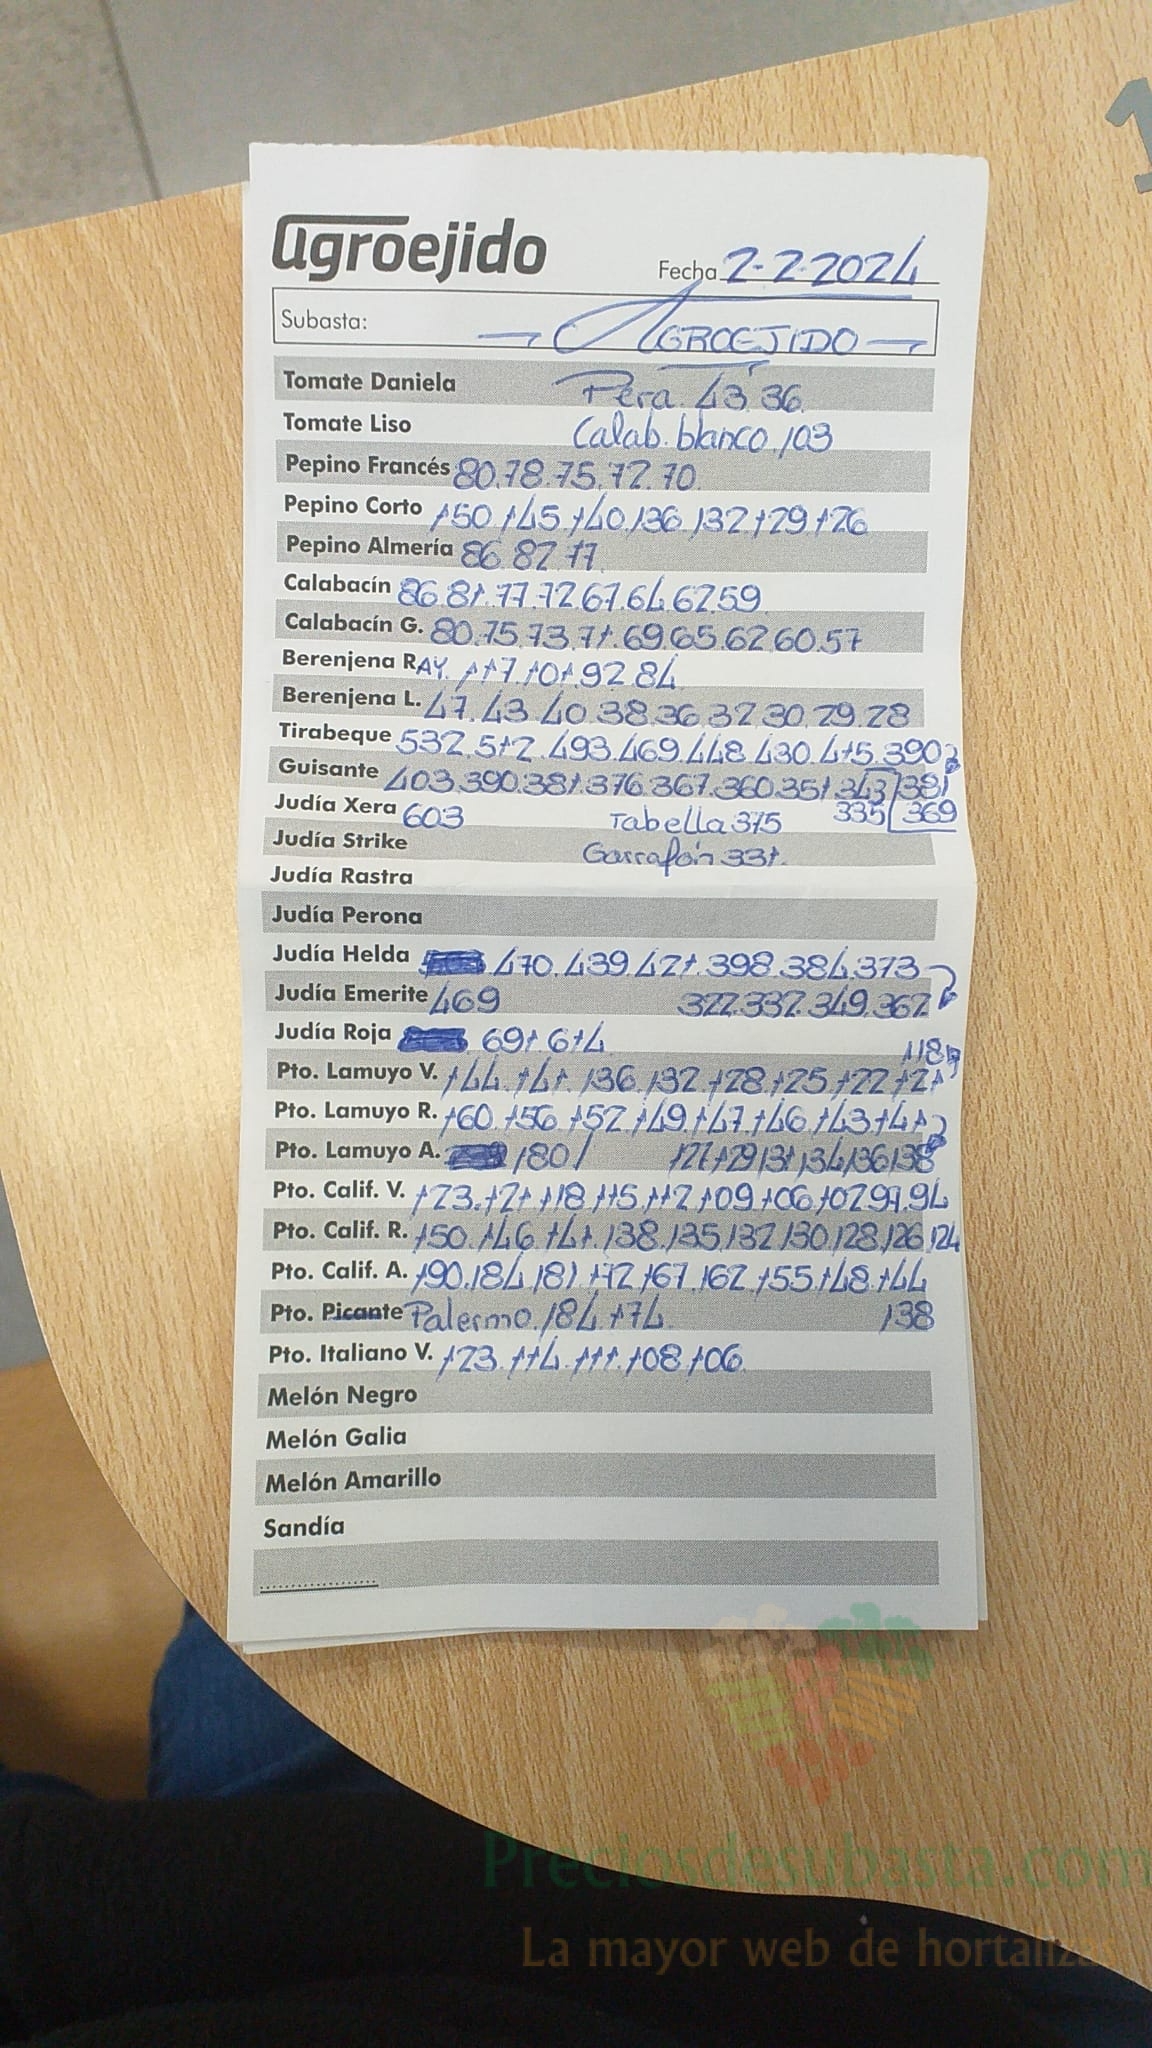 agroejido
Fecha 2-2-2024
Subasta: AGROEJIDO
Tomate Daniela Pera. 43 36.
Tomate Liso Calab. blanco. 103
Pepino Francés 80.78.75.72.70.
Pepino Corto 150.145.140.136.132.129.126
Pepino Almería 86.82.77.
Calabacín 86.81.77.72.67.64.62.59
Calabacín G. 80.75.73.71.69.65.62.60.57
Berenjena RAY. 117.101.92.84
Berenjena L. 47.43.40.38.36.32.30.29.28
Tirabeque 532.512.493.469.448.430.415.390
Guisante 403.390.381.376.367.360.351.343 381
Judía Xera 603 Tabella 375 335 369
Judía Strike Garrafón 331.
Judía Rastra
Judía Perona
Judía Helda 470.439.421.398.384.373
Judía Emerite 469 322.332.349.362
Judía Roja 691.614
118
Pto. Lamuyo V. 144.141.136.132.128.125.122.121
Pto. Lamuyo R. 160.156.152.149.147.146.143.141
Pto. Lamuyo A. 180/ 127.129.131.134.136.138
Pto. Calif. V. 123.121.118.115.112.109.106.102.97.94
Pto. Calif. R. 150.146.141.138.135.132.130.128.126.124
Pto. Calif. A. 190.184.181.172.167.162.155.148.144
Pto. Picante Palermo. 184.174. 138
Pto. Italiano V. 123.114.111.108.106.
Melón Negro
Melón Galia
Melón Amarillo
Sandía
Preciosdesubasta.com
La mayor web de hortalizas
1